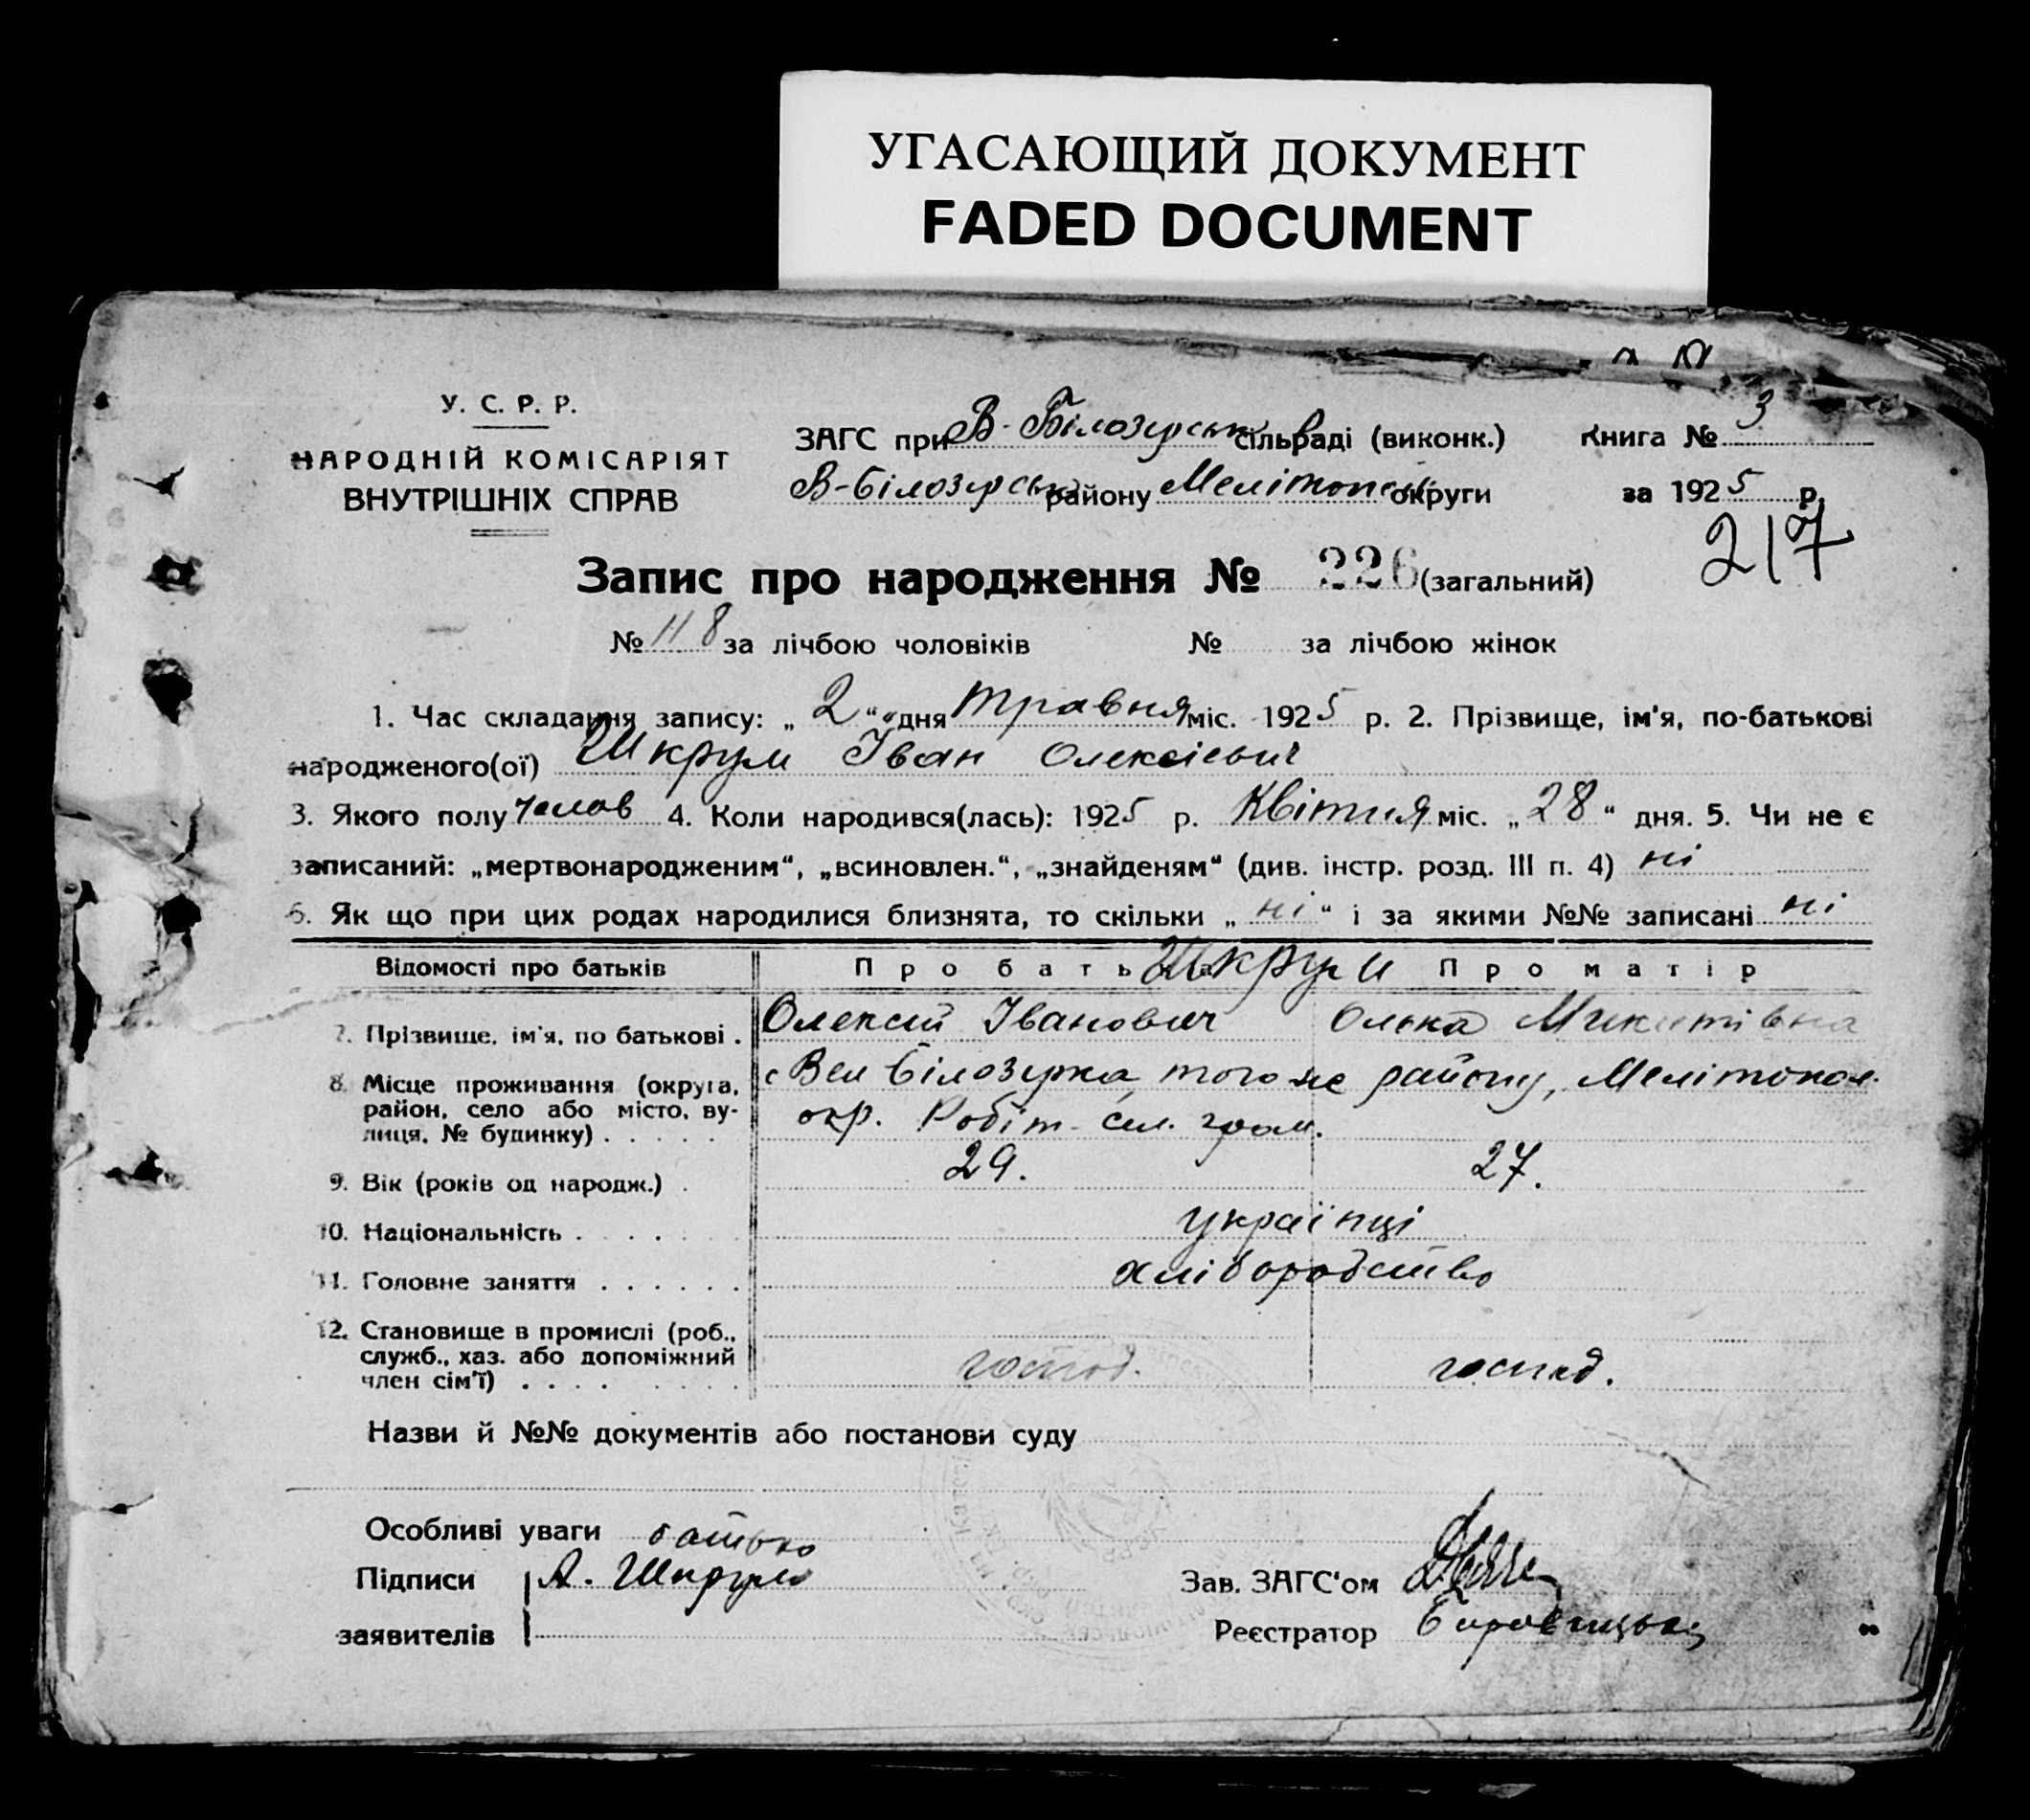 УГАСАЮЩИЙ ДОКУМЕНТ
FADED DOCUMENT
У. С. Р. Р.
НАРОДНІЙ КОМІСАРІЯТ
ВНУТРІШНІХ СПРАВ
ЗАГС при В-Білозерськ сільраді (виконк.)
В-Білозерськ району Мелітопольськ округи
Книга № 3
за 1925 р.
217
Запис про народження № 226 (загальний)
№ 118 за лічбою чоловіків № за лічбою жінок
1. Час складання запису: „ 2 “ дня травня міс. 1925 р. 2. Прізвище, ім'я, по-батькові
народженого(ої) Шкрум Іван Олексієвич
3. Якого полу чолов 4. Коли народився(лась): 1925 р. Квітня міс. „ 28 “ дня. 5. Чи не є
записаний: „мертвонародженим“, „всиновлен.“, „знайденям“ (див. інстр. розд. III п. 4) ні
6. Як що при цих родах народилися близнята, то скільки „ ні “ і за якими №№ записані ні
Відомості про батьків Про батька Шкрум Про матір
7. Прізвище, ім'я, по батькові . Олексій Іванович Олька Микитівна
8. Місце проживання (округа, с Вел Білозерка того же району, Мелітопол.
район, село або місто, ву- окр. Робіт. сел. гром.
лиця, № будинку) . . . . .
9. Вік (років од народж.) . 29. 27.
10. Національність . . . . . . українці
11. Головне заняття . . . . . . хліборобство
12. Становище в промислі (роб.,
служб., хаз. або допоміжний
член сім'ї) . . . . . . . . господ. господ.
Назви й №№ документів або постанови суду
Особливі уваги батько
Підписи А. Шкрум Зав. ЗАГС'ом
заявителів Реєстратор